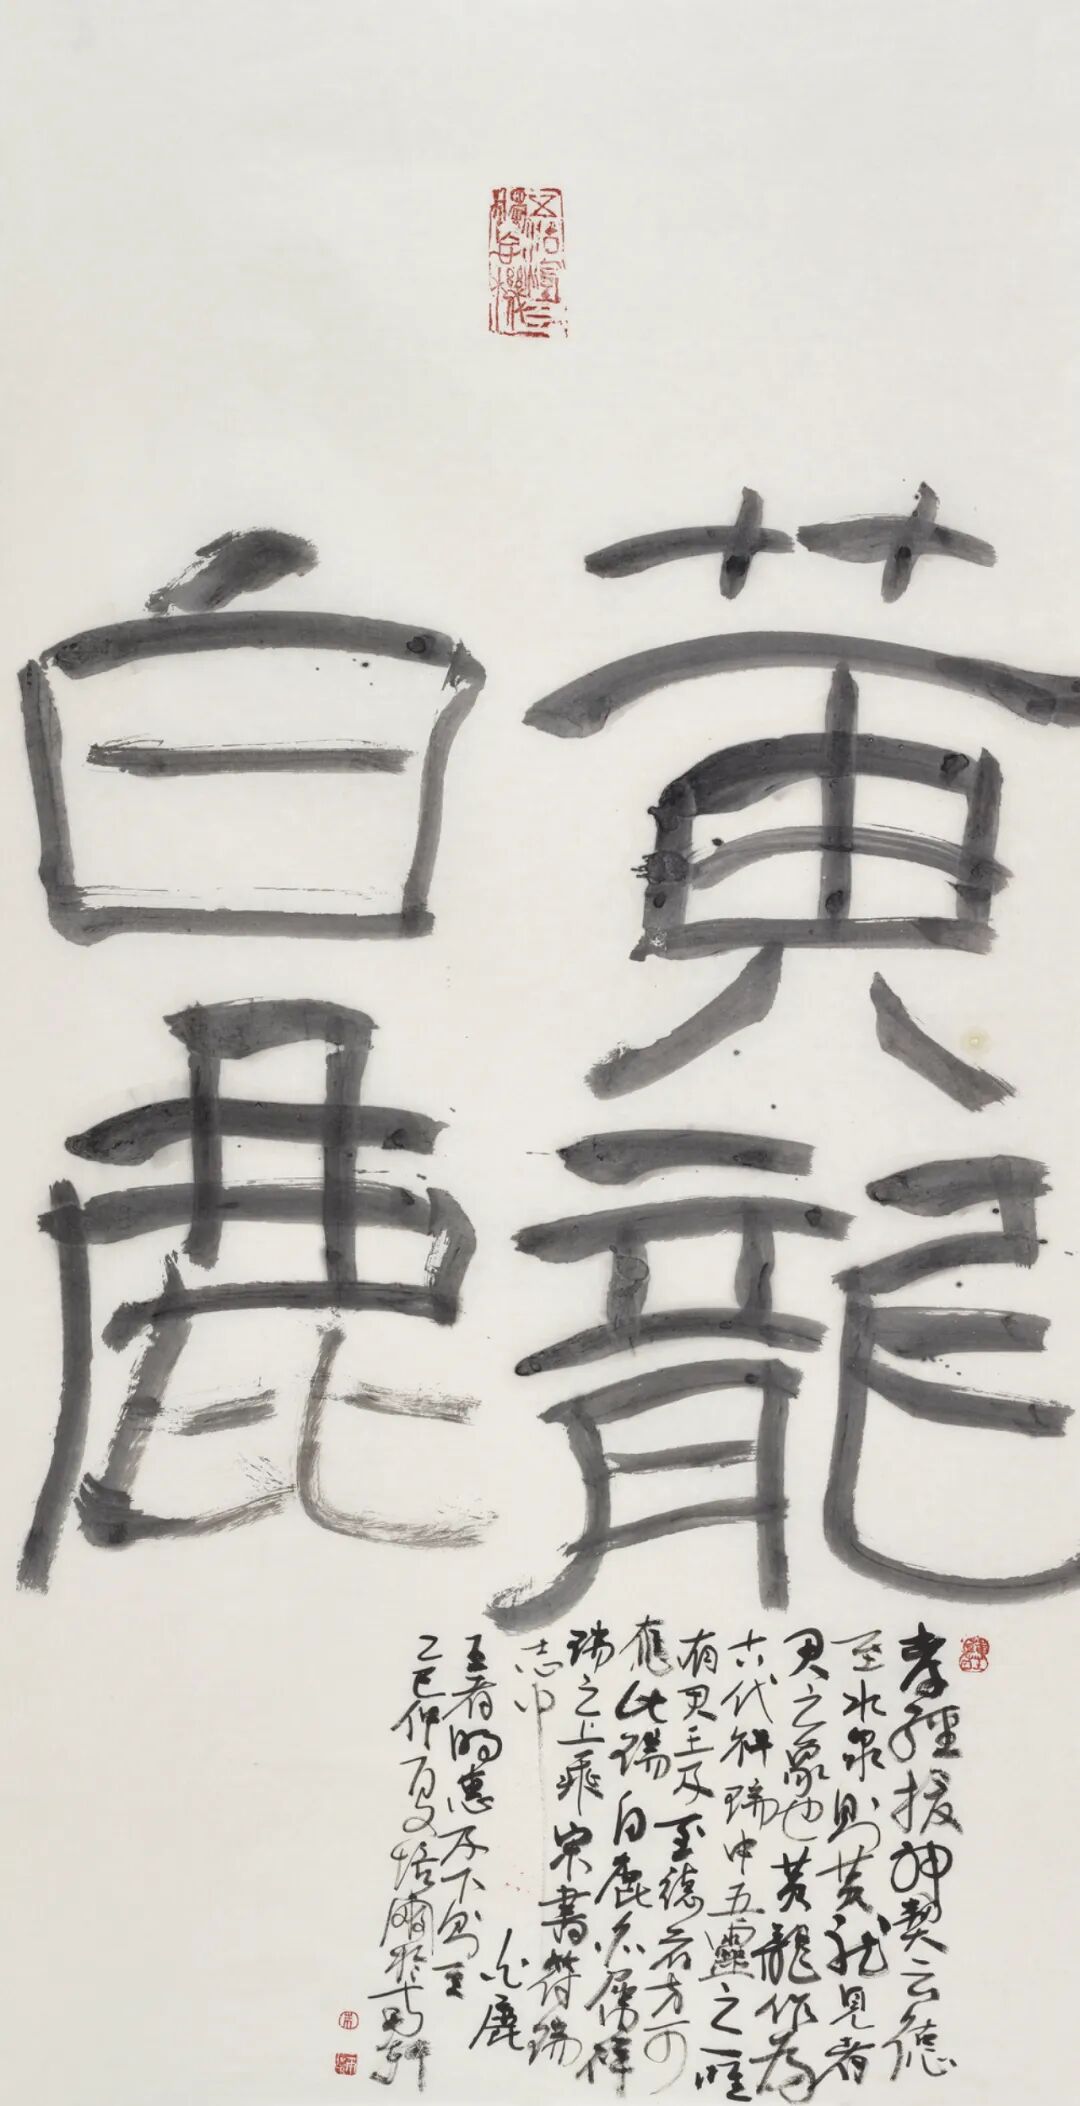 黄龍
白鹿
孝經援神契云德
至水泉則黄龍見者
君之象也黄龍作為
古代祥瑞中五靈之一唯
有君王及至德者方可
應此瑞白鹿亦屬祥
瑞之上乘宋書符瑞
志中白鹿
王者明惠及下則至
乙巳仲夏培爾於軒